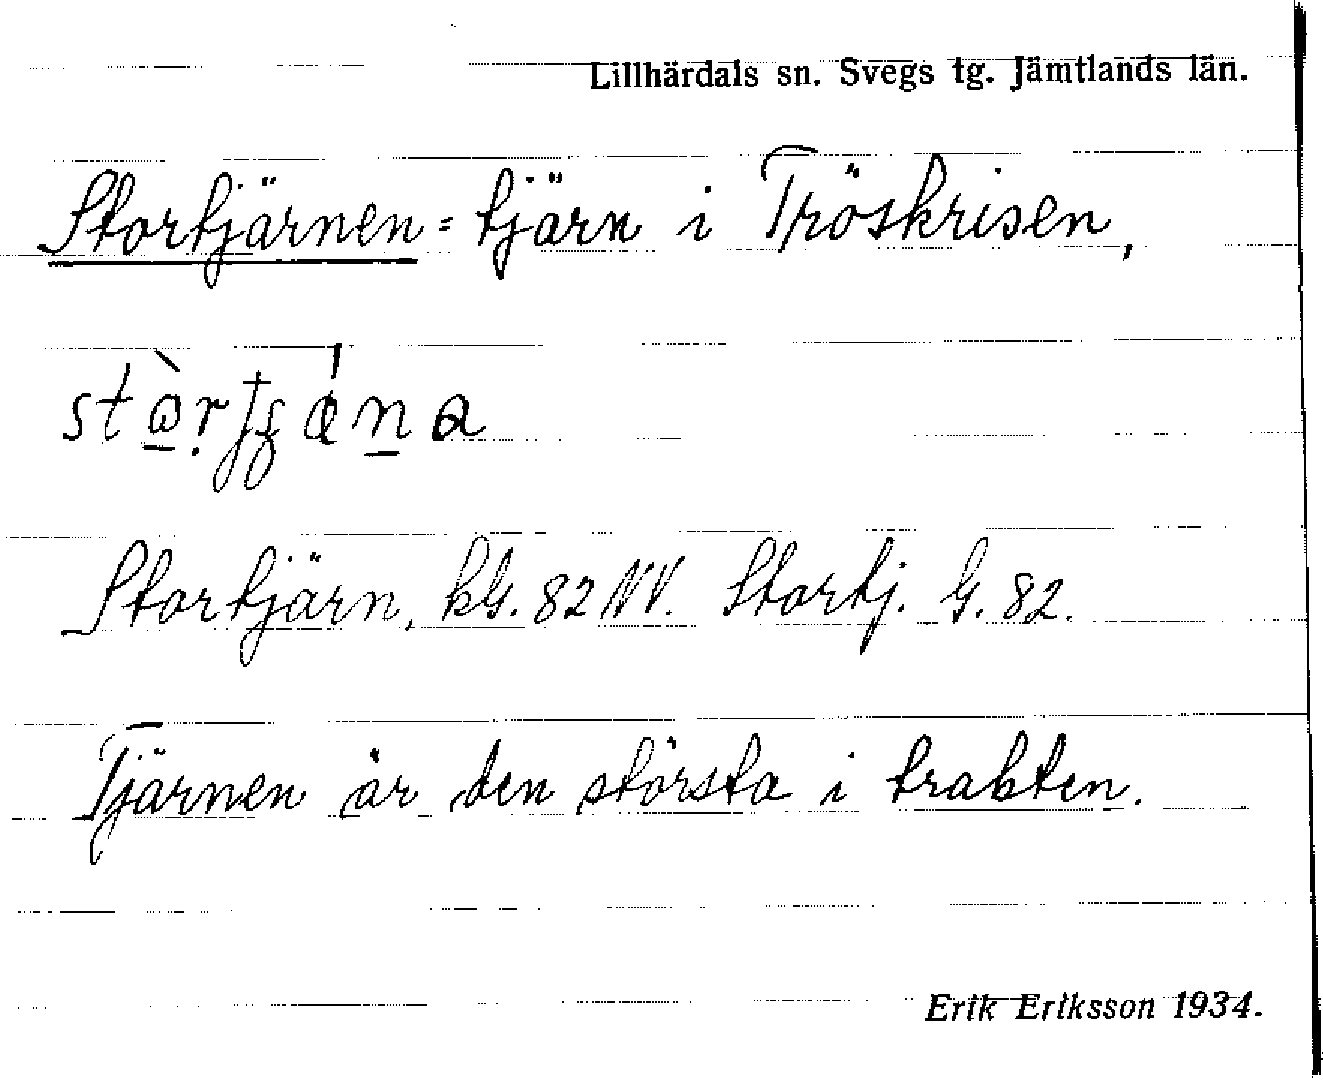 Lillhärdals sn. Svegs tg. Jämtlands län.
Stortjärnen = tjärn i Tröskrisen,
Stortjärn, kG. 82 NV. Stortj. G. 82.
Tjärnen är den största i trakten.
Erik Eriksson 1934.